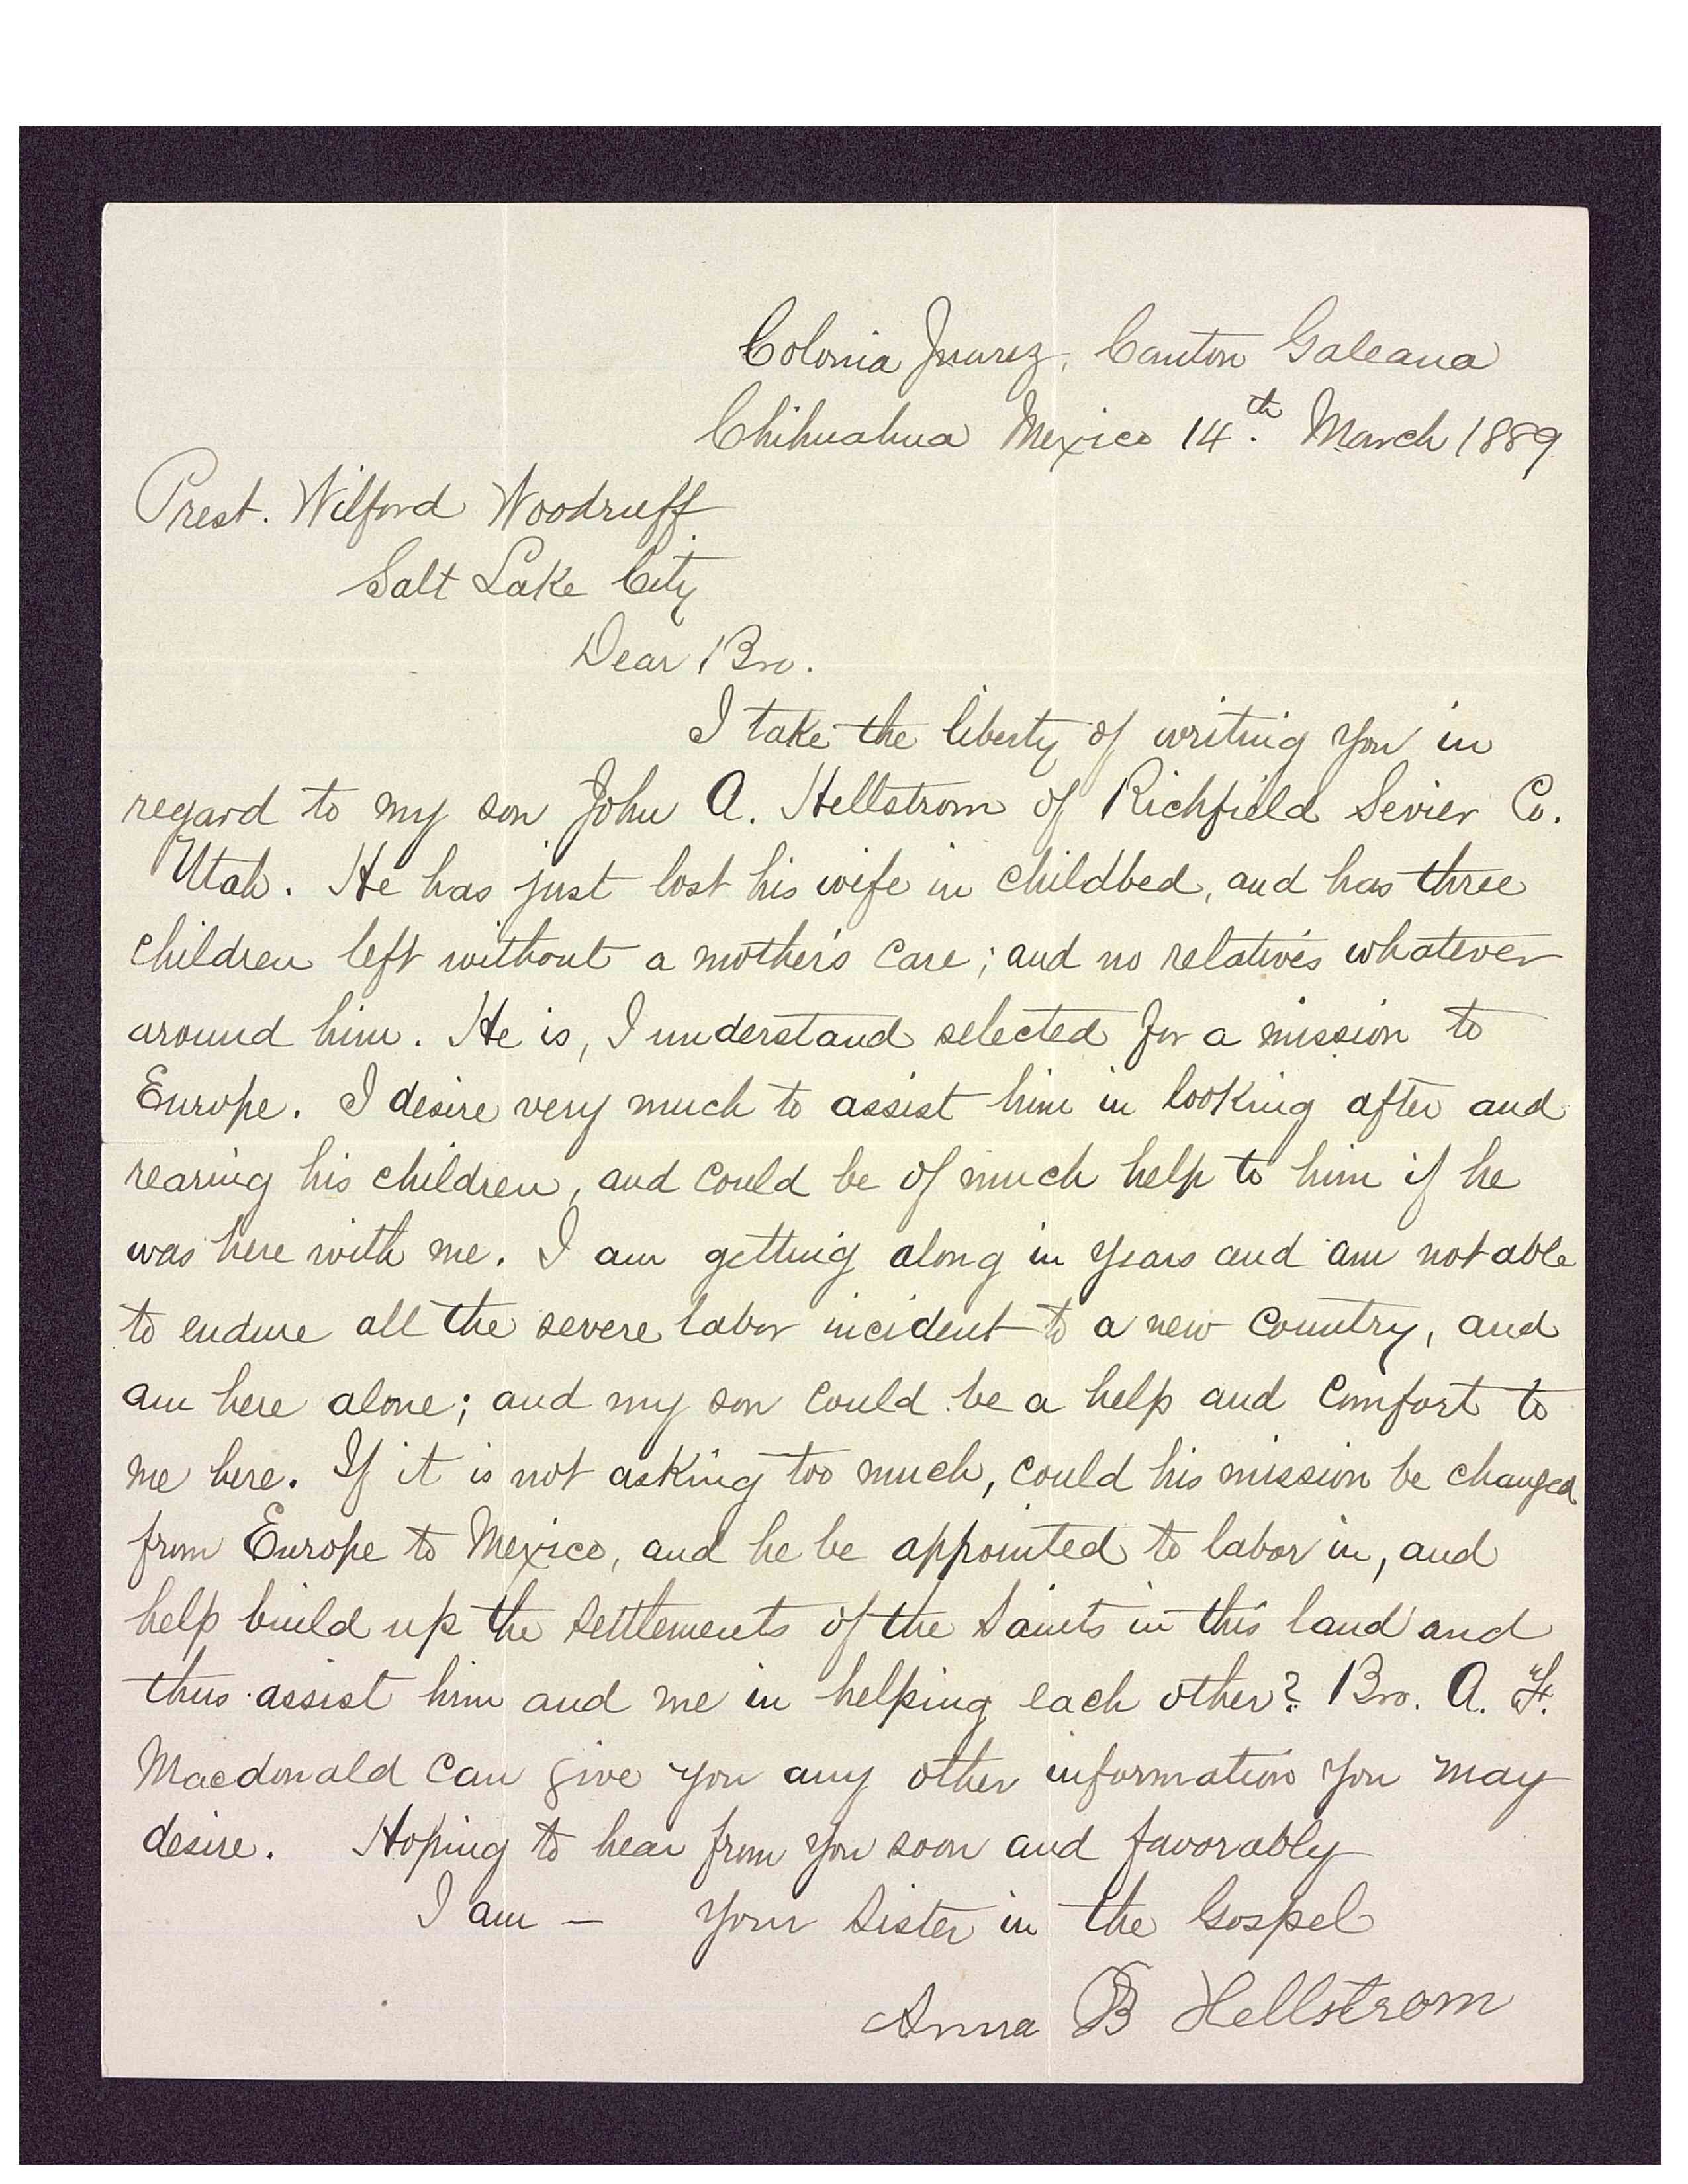 Colonia Juarez, Canton Galeana
Chihuahua Mexico 14.th March 1889
Prest. Wilford Woodruff
Salt Lake City
Dear Bro.
I take the liberty of writing you in
regard to my son John A. Hellstrom of Richfield Sevier Co.
Utah. He has just lost his wife in childbed, and has three
children left without a mother's care; and no relatives whatever
around him. He is, I understand selected for a mission to
Europe. I desire very much to assist him in looking after and
rearing his children, and could be of much help to him if he
was here with me. I am getting along in years and am not able
to endure all the severe labor incident to a new country, and
am here alone; and my son could be a help and comfort to
me here. If it is not asking too much, could his mission be changed
from Europe to Mexico, and he be appointed to labor in, and
help build up the settlements of the Saints in this land and
thus assist him and me in helping each other? Bro. A. F.
Macdonald can give you any other information you may
desire. Hoping to hear from you soon and favorably
I am — your Sister in the Gospel
Anna B Hellstrom